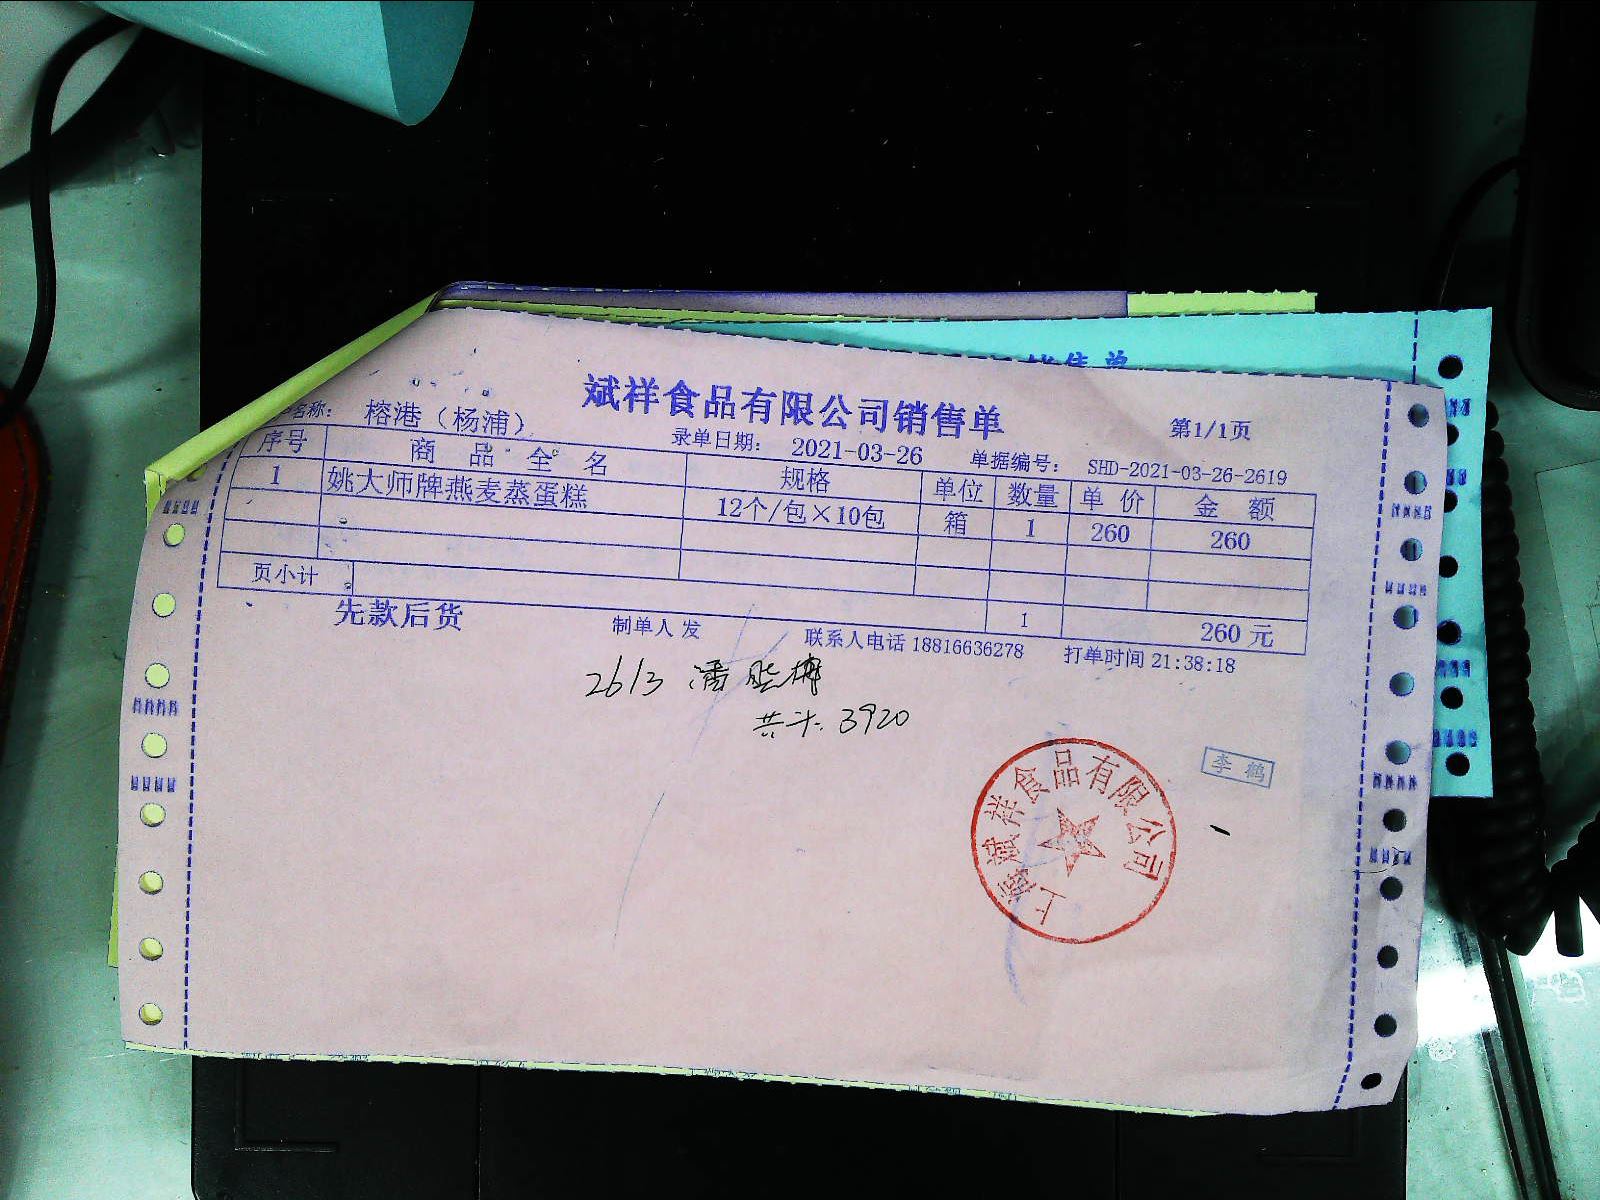 斌祥食品有限公司销售单
户名称： 榕港（杨浦） 录单日期： 2021-03-26 单据编号： SHD-2021-03-26-2619 第1/1页
序号 商品全名 规格 单位 数量 单价 金额
1 姚大师牌燕麦蒸蛋糕 12个/包×10包 箱 1 260 260
页小计 1 260 元
先款后货 制单人 发 联系人电话 18816636278 打单时间 21:38:18
2613 潘
共计. 3920
上海斌祥食品有限公司
李鹤
销售单